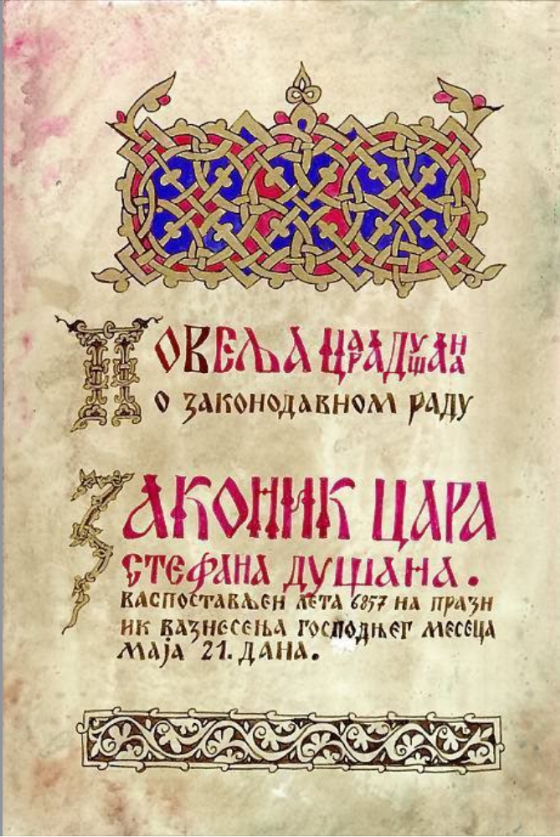 ПОВЕЉА ЦАРА ДУШАНА
О ЗАКОНОДАВНОМ РАДУ
ЗАКОНИК ЦАРА
СТЕФАНА ДУШАНА.
ВАСПОСТАВЉЕН ЛЕТА 6857 НА ПРАЗН
ИК ВАЗНЕСЕЊА ГОСПОДЊЕГ МЕСЕЦА
МАЈА 21. ДАНА.